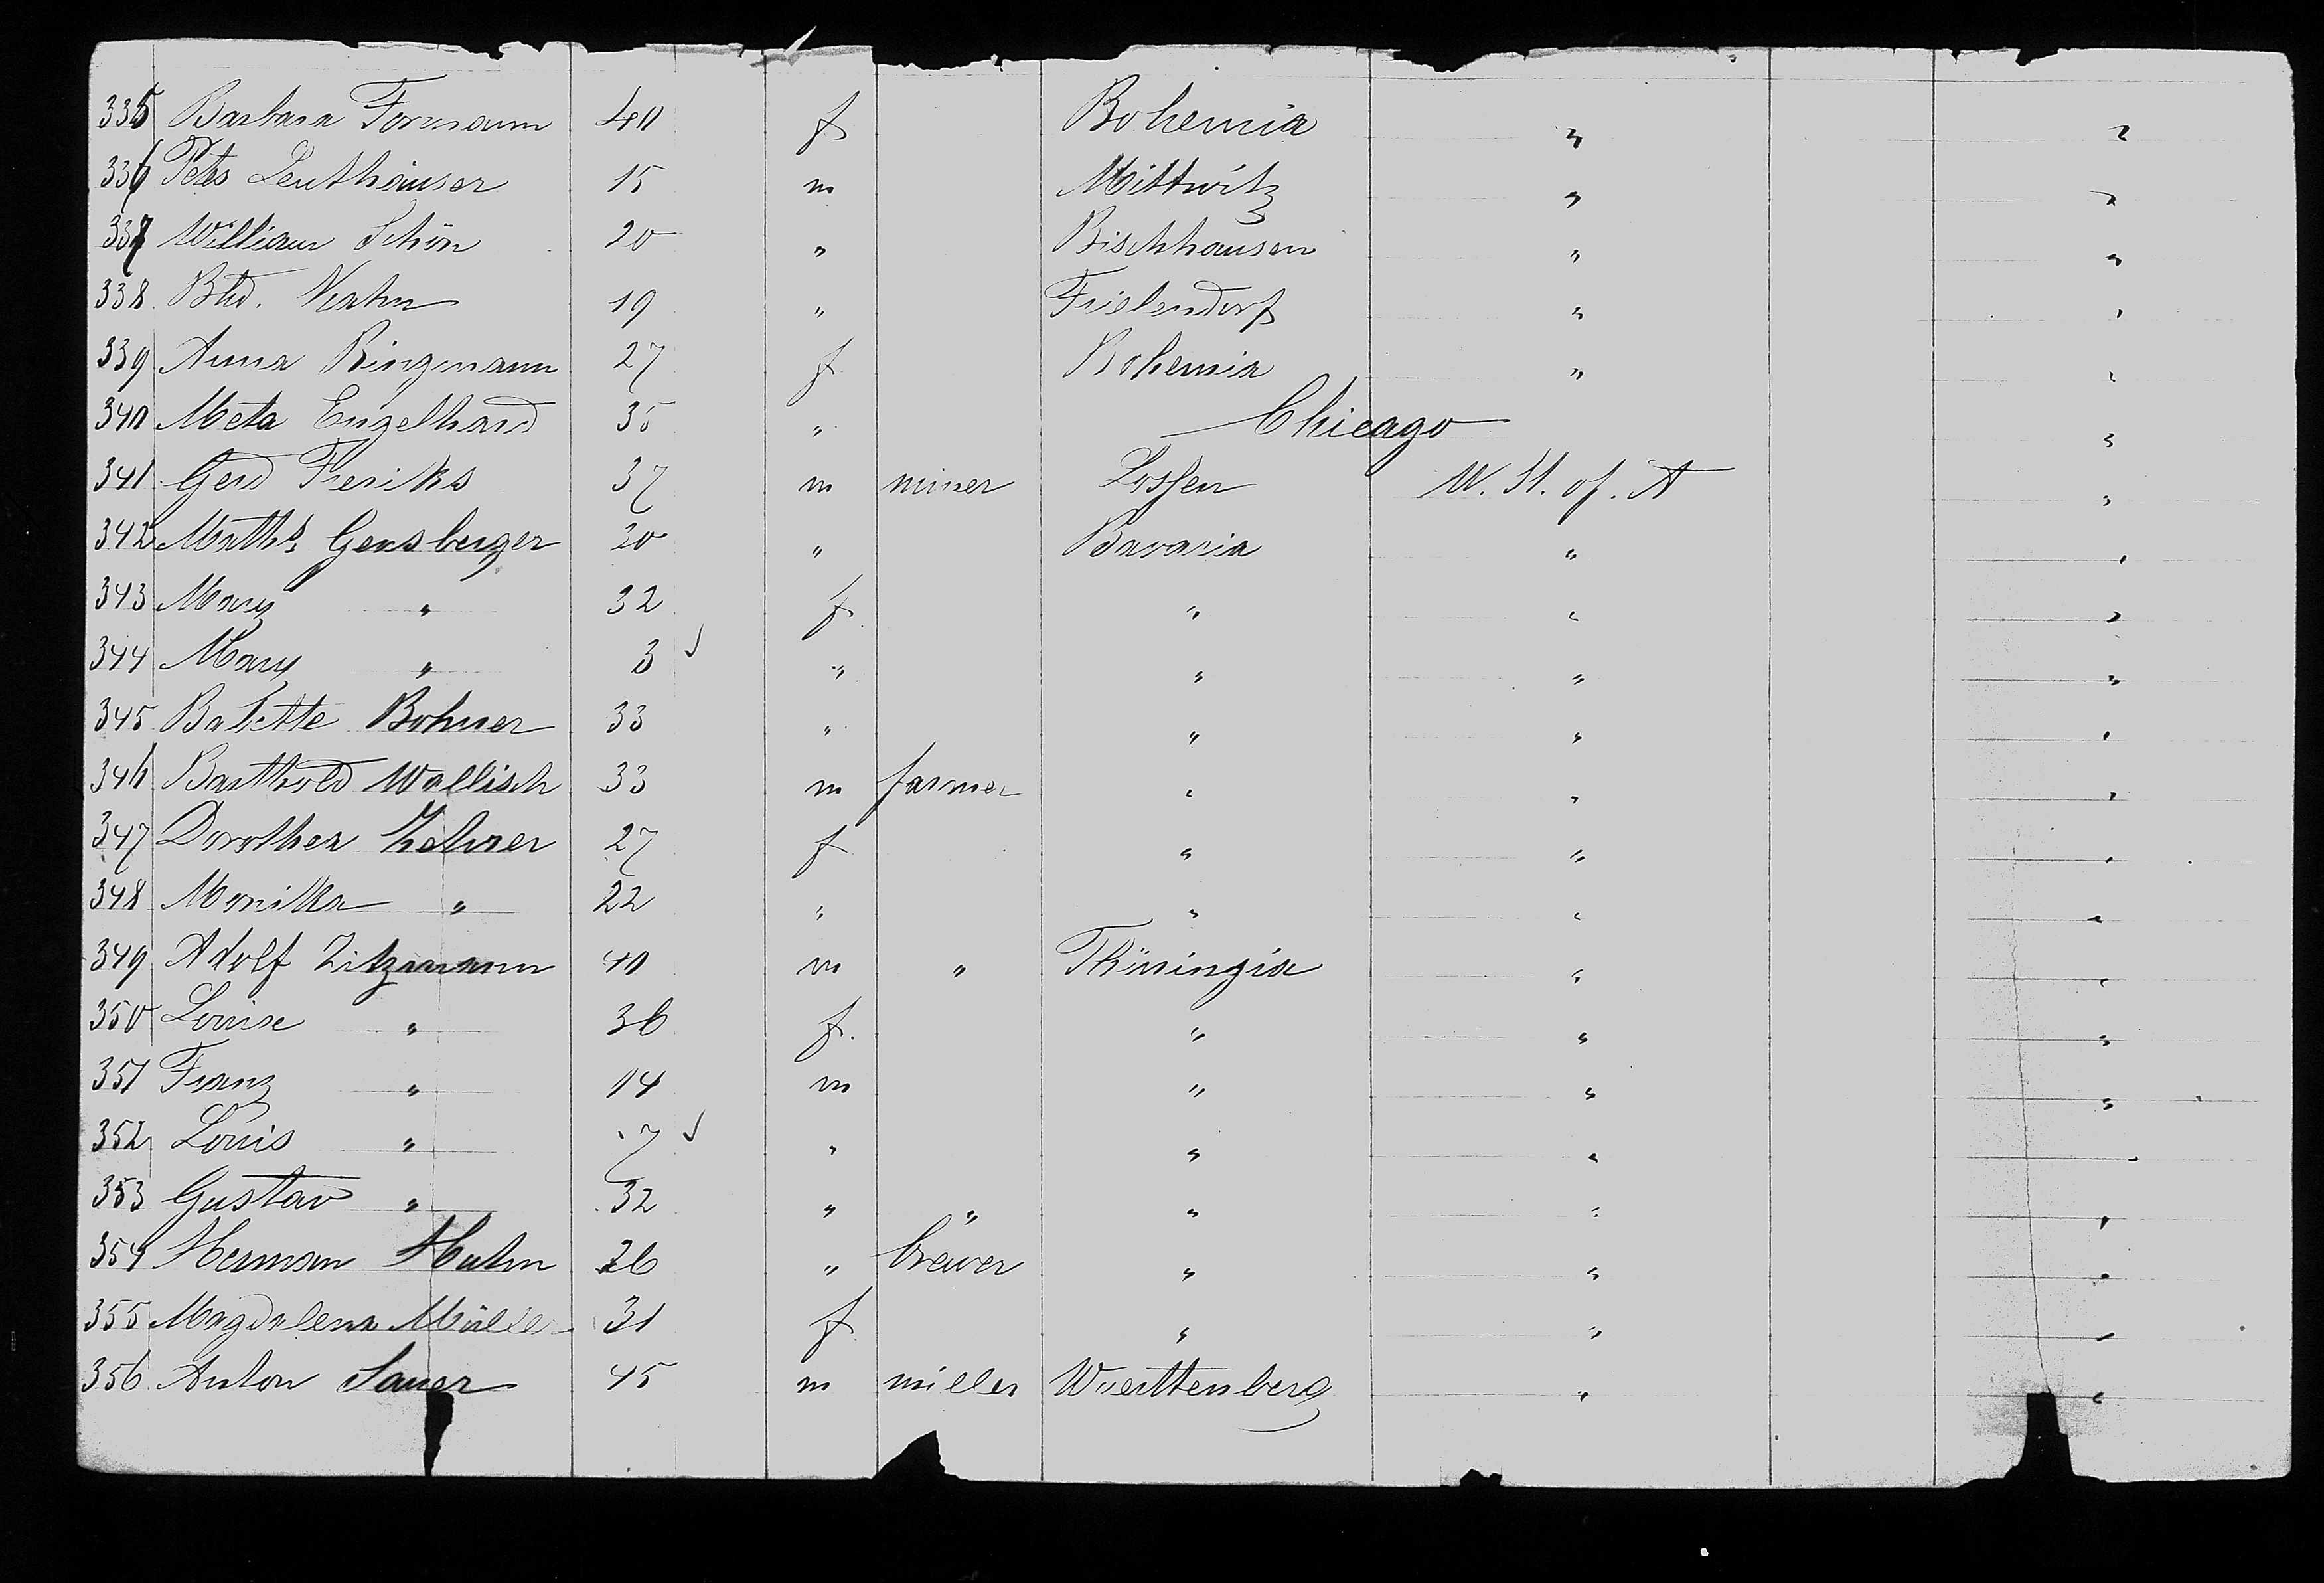 335 Barbara Formann 40 f Bohemia " "
336 Peter Leuthäuser 15 m Mittwitz " "
337 William Schön 20 " Bischhausen " "
338 Bhd. 19 " Frielendorf " "
339 Anna Ringmann 27 f Bohemia " "
340 Meta Engelhard 35 " Chicago "
341 Gerd Freriks 37 m miner W. St. of. A "
342 Maths Gensberger 30 " Bavaria " "
343 Mary " 32 f " " "
344 Mary " 3 " " " "
345 Babette Bohner 33 " " " "
346 Barthold Wallisch 33 m farmer " " "
347 Dorothea Zehrer 27 f " " "
348 Monika " 22 " " " "
349 Adolf Zitzmann 40 m " Thüringia " "
350 Louise " 36 f. " " "
351 Franz " 14 m " " "
352 Louis " 7 " " " "
353 Gustav " 32 " " " " "
354 Herman Huhn 26 " brewer " " "
355 Magdalena Mülle 31 f " " "
356 Anton Sauer 45 m miller Wuerttenberg " "